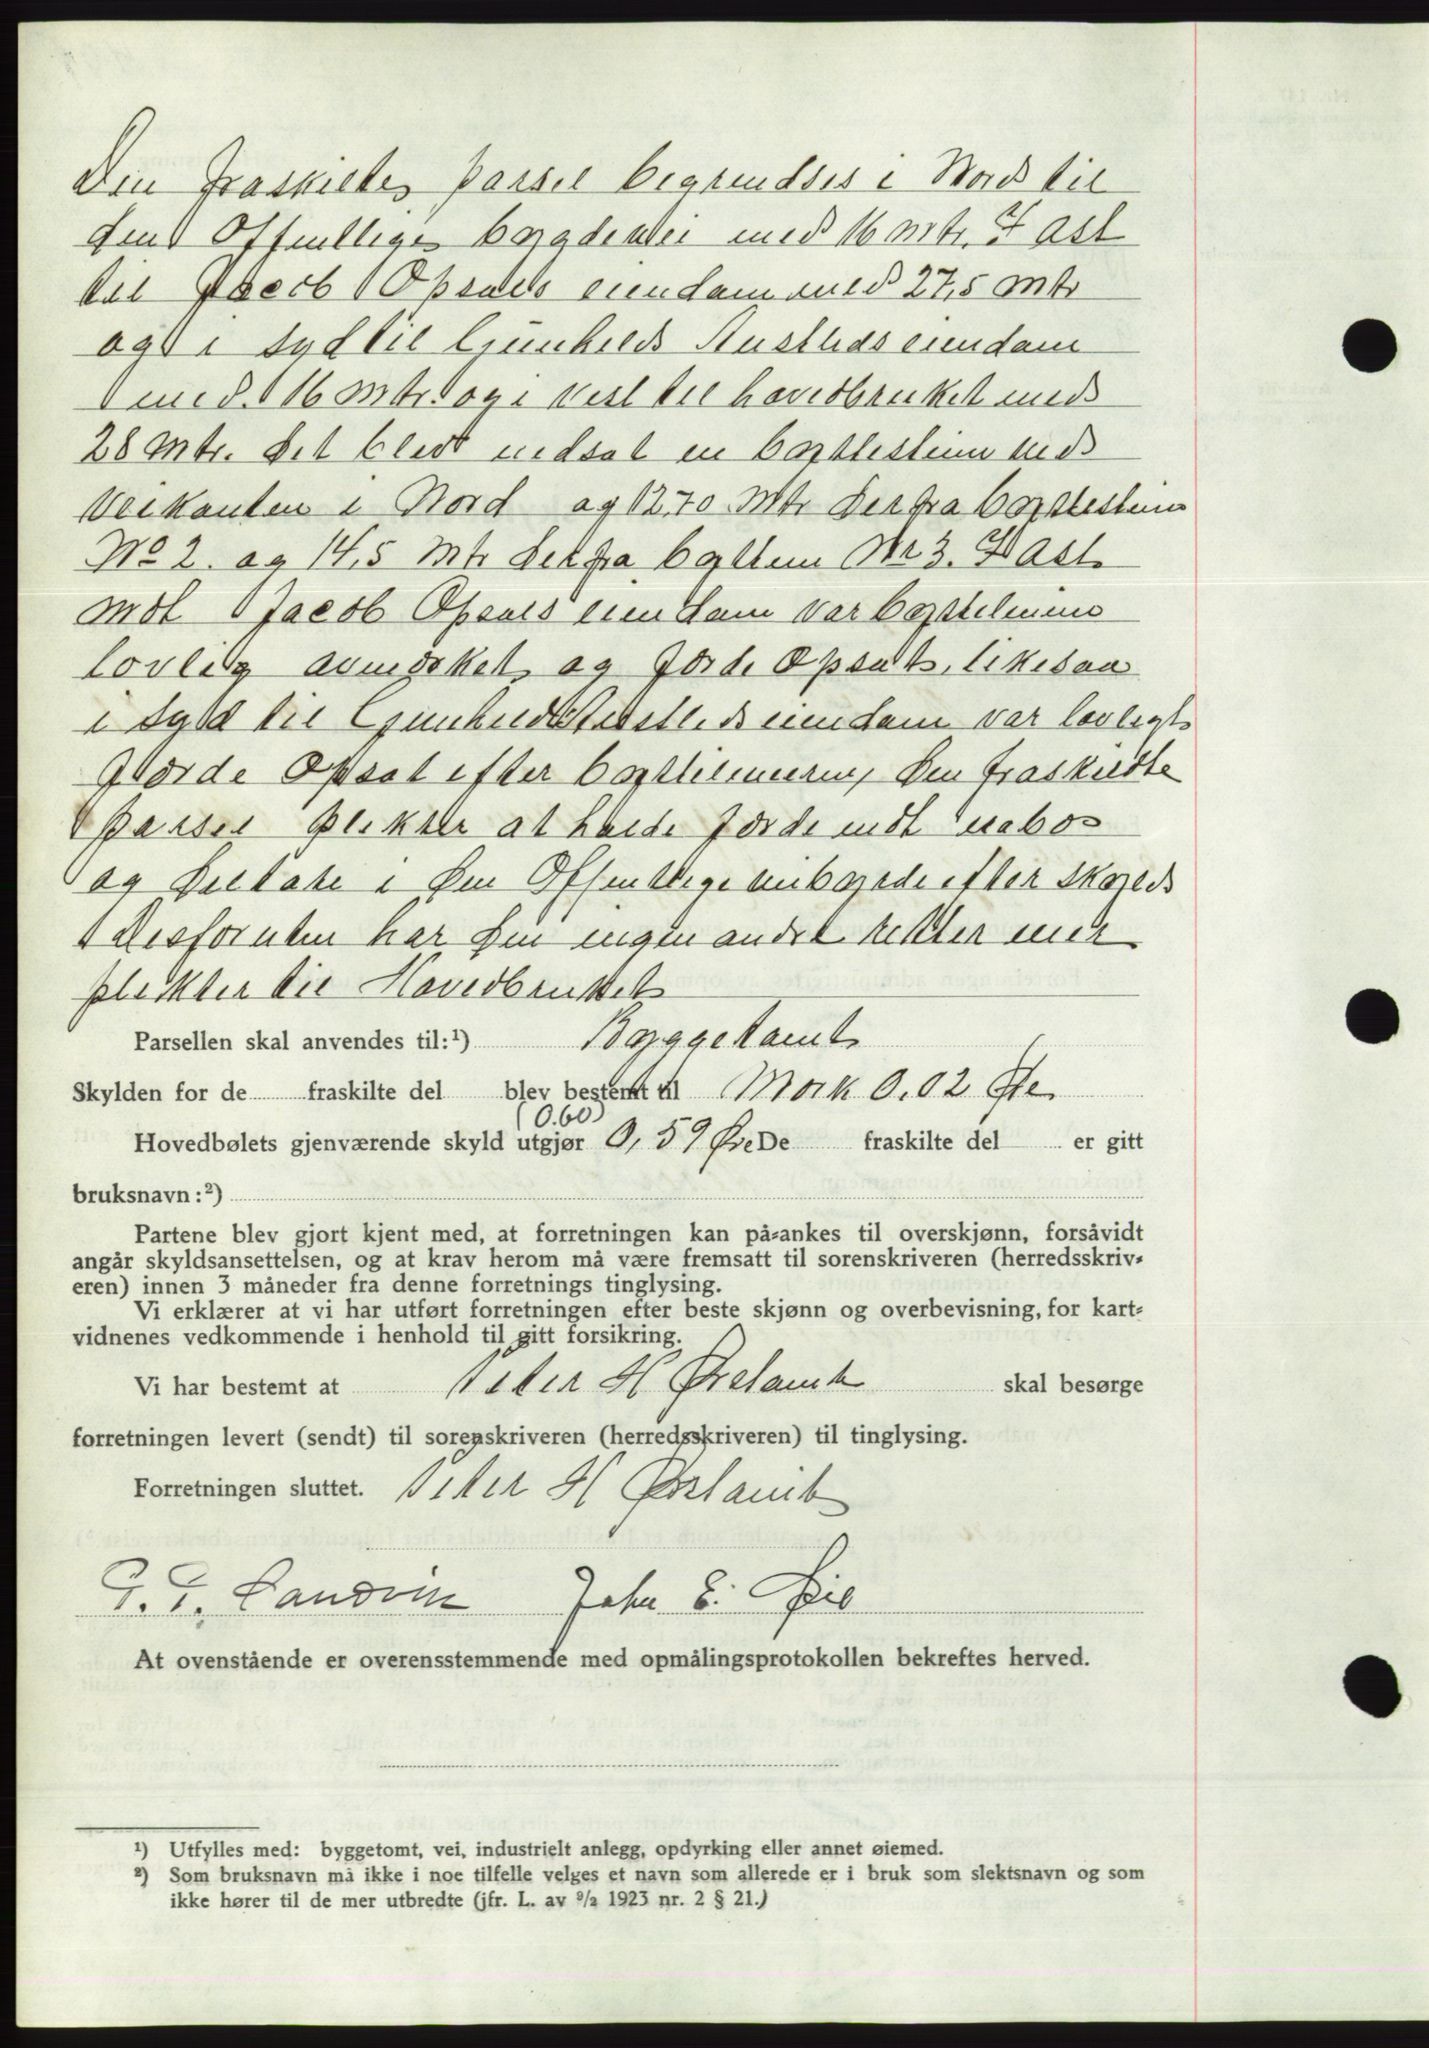 Den fraskilte parsel begrendses i Nord til
den Offentlige bygdevei med 16 mtr. I Ast
til Jacob Opsals eiendam med 27,5 mtr
og i syd til Gunhilds Austlids eiendam
med 16 mtr. og i vest til hovedbruket med
28 mtr. Det blev nedsat en byttestein ved
veikanten i Nord og 12,70 mtr derfra byttestein
No 2. og 14,5 mtr derfra byttein Nr 3. I Ast
mot Jacob Opsals eiendam var byttelinien
lovlig avmerket og Jærde Opsat, likesaa
i syd til Gunhild Austlids eiendam var lovlegt
Jærde Opsat efter byttelinierne, Den fraskildte
parsel plekter at halde Jærde mot nabo
og deltake i den Offentlige veibyrde efter skyld
Desforuten har den ingen andre retter eller
plekter til Hovedbruket
Parsellen skal anvendes til:¹) Byggetomt
Skylden for de fraskilte del blev bestemt til Mork 0,02 Øre
(0.60)
Hovedbølets gjenværende skyld utgjør 0,59 Øre De fraskilte del er gitt
bruksnavn:²)
Partene blev gjort kjent med, at forretningen kan på-ankes til overskjønn, forsåvidt
angår skyldsansettelsen, og at krav herom må være fremsatt til sorenskriveren (herredsskriv-
eren) innen 3 måneder fra denne forretnings tinglysing.
Vi erklærer at vi har utført forretningen efter beste skjønn og overbevisning, for kart-
vidnenes vedkommende i henhold til gitt forsikring.
Vi har bestemt at Peter H Ørstavik skal besørge
forretningen levert (sendt) til sorenskriveren (herredsskriveren) til tinglysing.
Forretningen sluttet. Peter H Ørstavik
P. P. Sandvik John E. Øie
At ovenstående er overensstemmende med opmålingsprotokollen bekreftes herved.
¹) Utfylles med: byggetomt, vei, industrielt anlegg, opdyrking eller annet øiemed.
²) Som bruksnavn må ikke i noe tilfelle velges et navn som allerede er i bruk som slektsnavn og som
ikke hører til de mer utbredte (jfr. L. av ⁹/₂ 1923 nr. 2 § 21.)